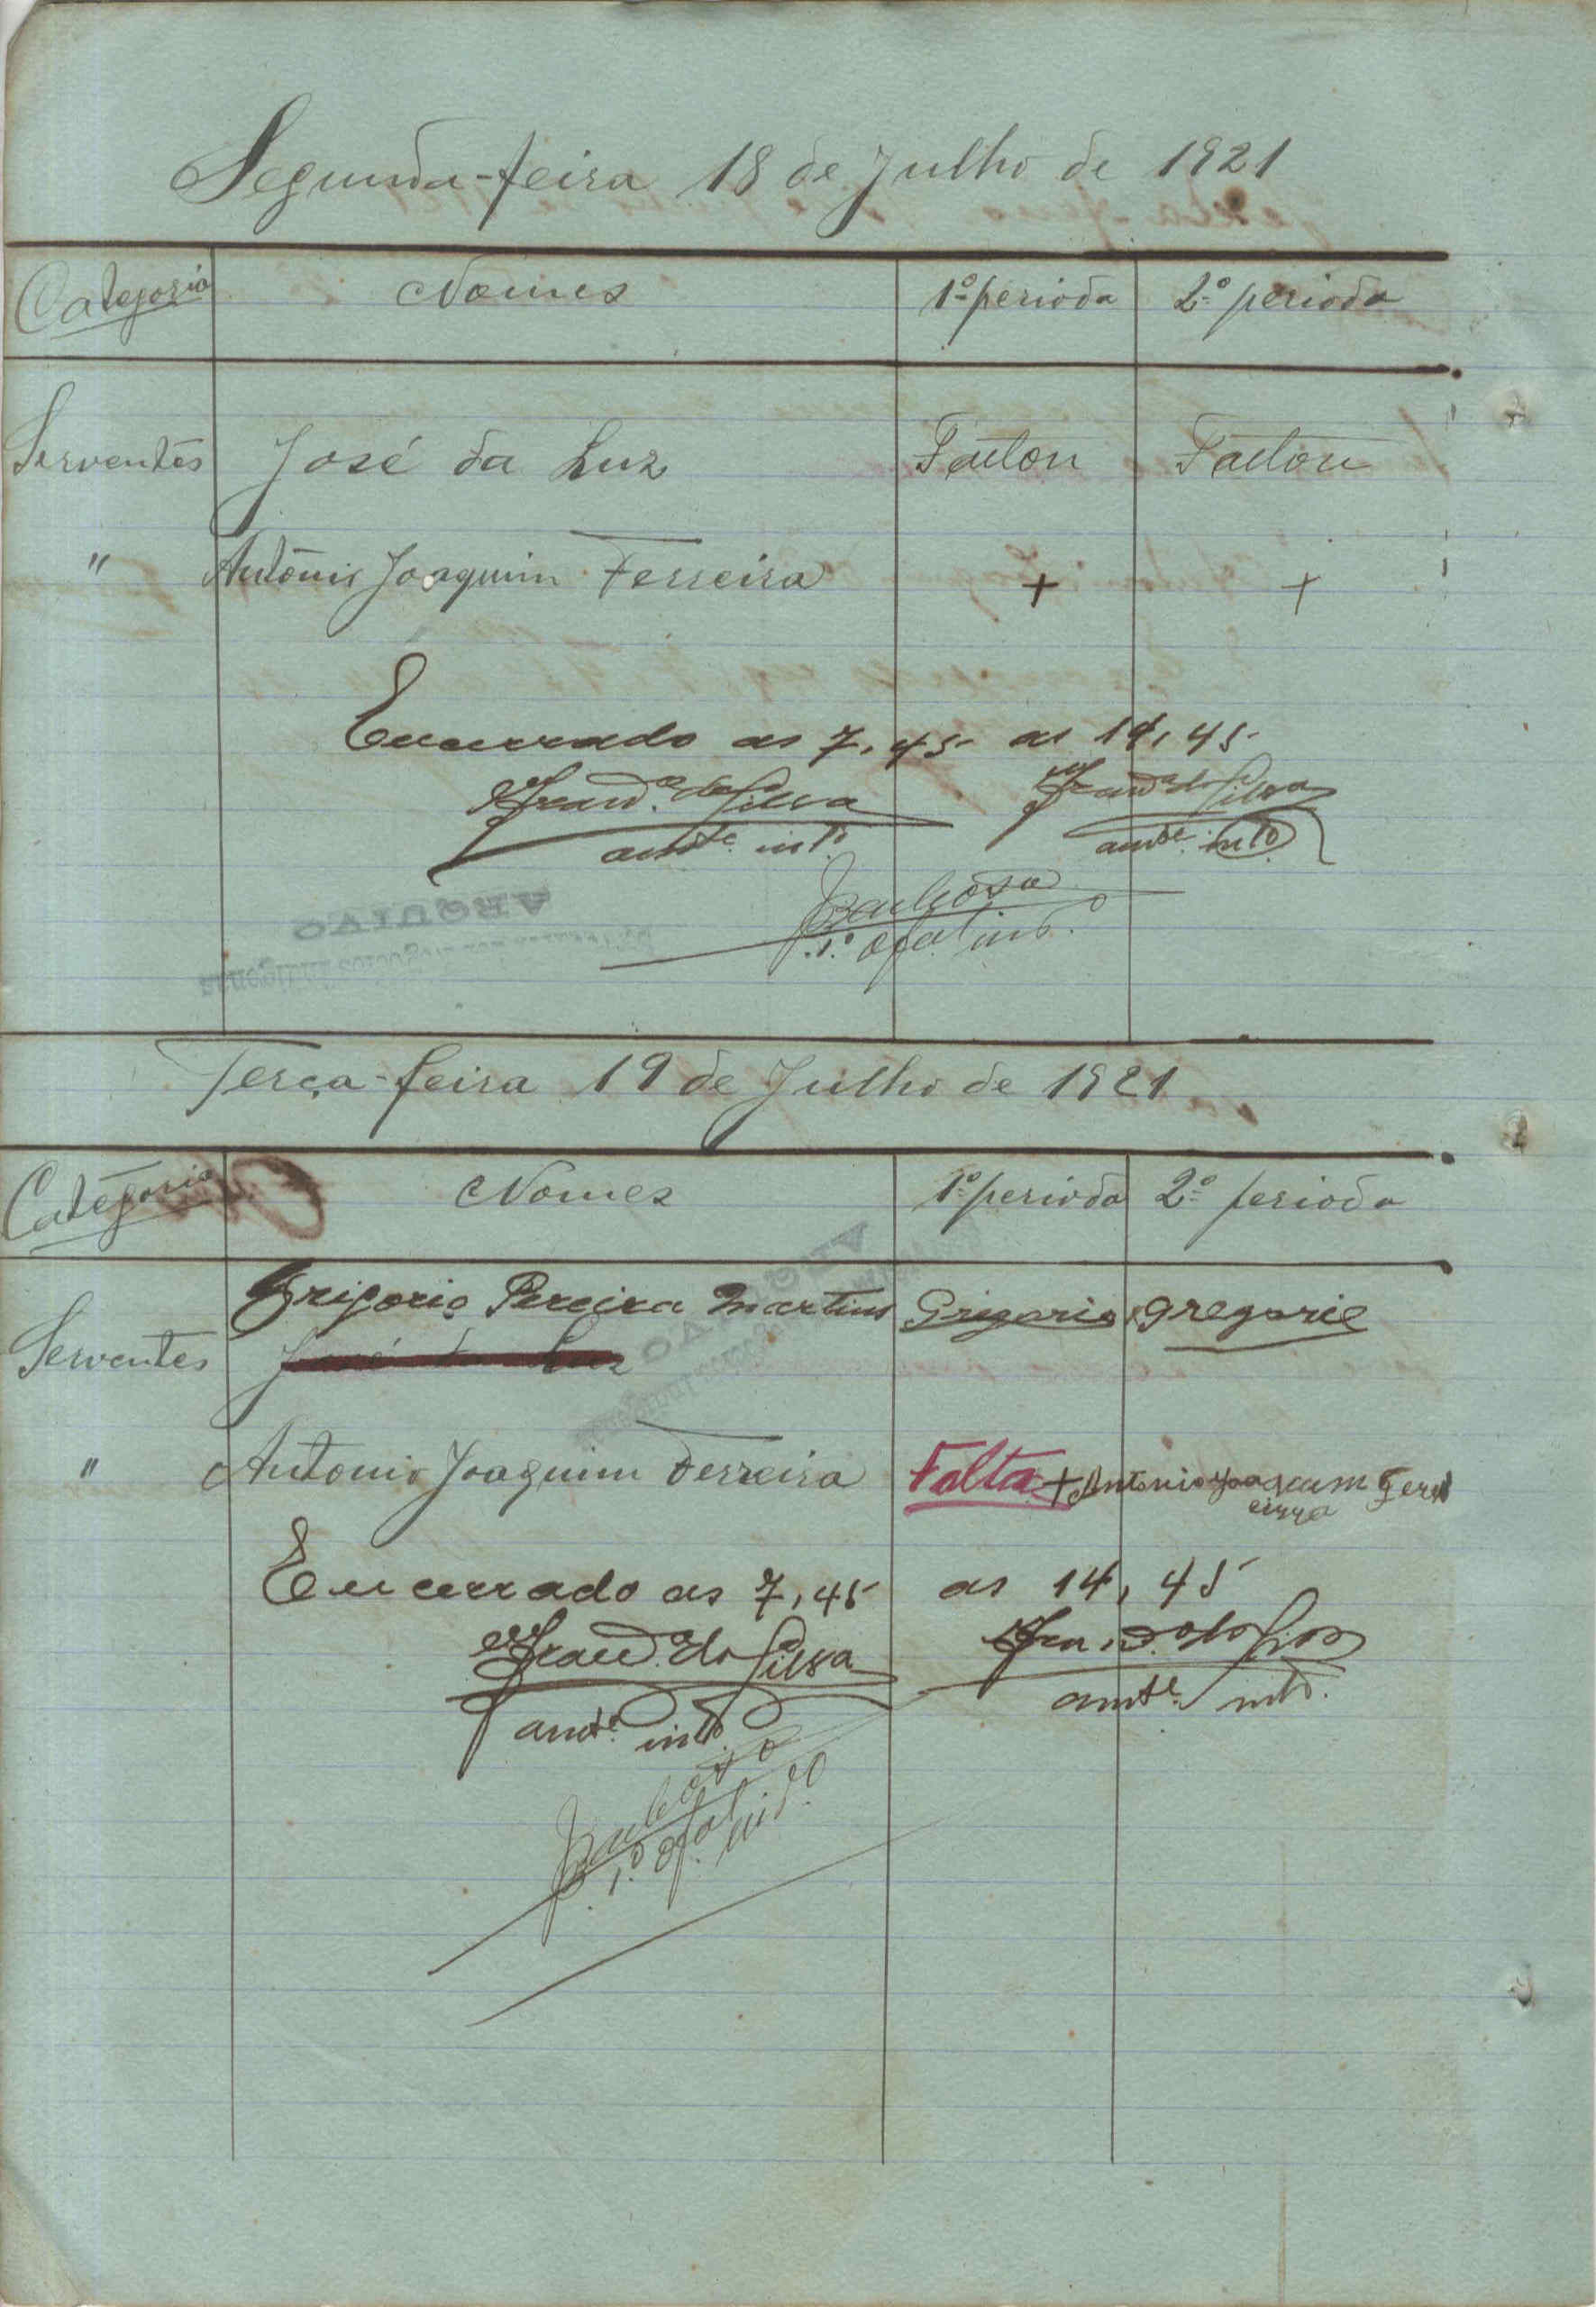 Segunda-feira 18 de Julho de 1921
Categoria Nomes 1º periodo 2º periodo
Serventes José da Luz Faltou Faltou
" Antonio Joaquim Ferreira + +
Encerrado as 7,45 as 14,45
da Silva da Silva
amte. intº. amte. intº
Barbosa
1º ofal. intº.
ARQUIVO
Terça-feira 19 de Julho de 1921
Categoria Nomes 1º periodo 2º periodo
Grigorio Pereira Martins Grigorio gregorie
Serventes José da Luz
" Antonio Joaquim Ferreira Falta + Antonio Joaqcum Ferr
eirra
Encerrado as 7,45 as 14,45
da Silva
amte. intº. amte. intº.
Barbosa
1º ofal. intº.